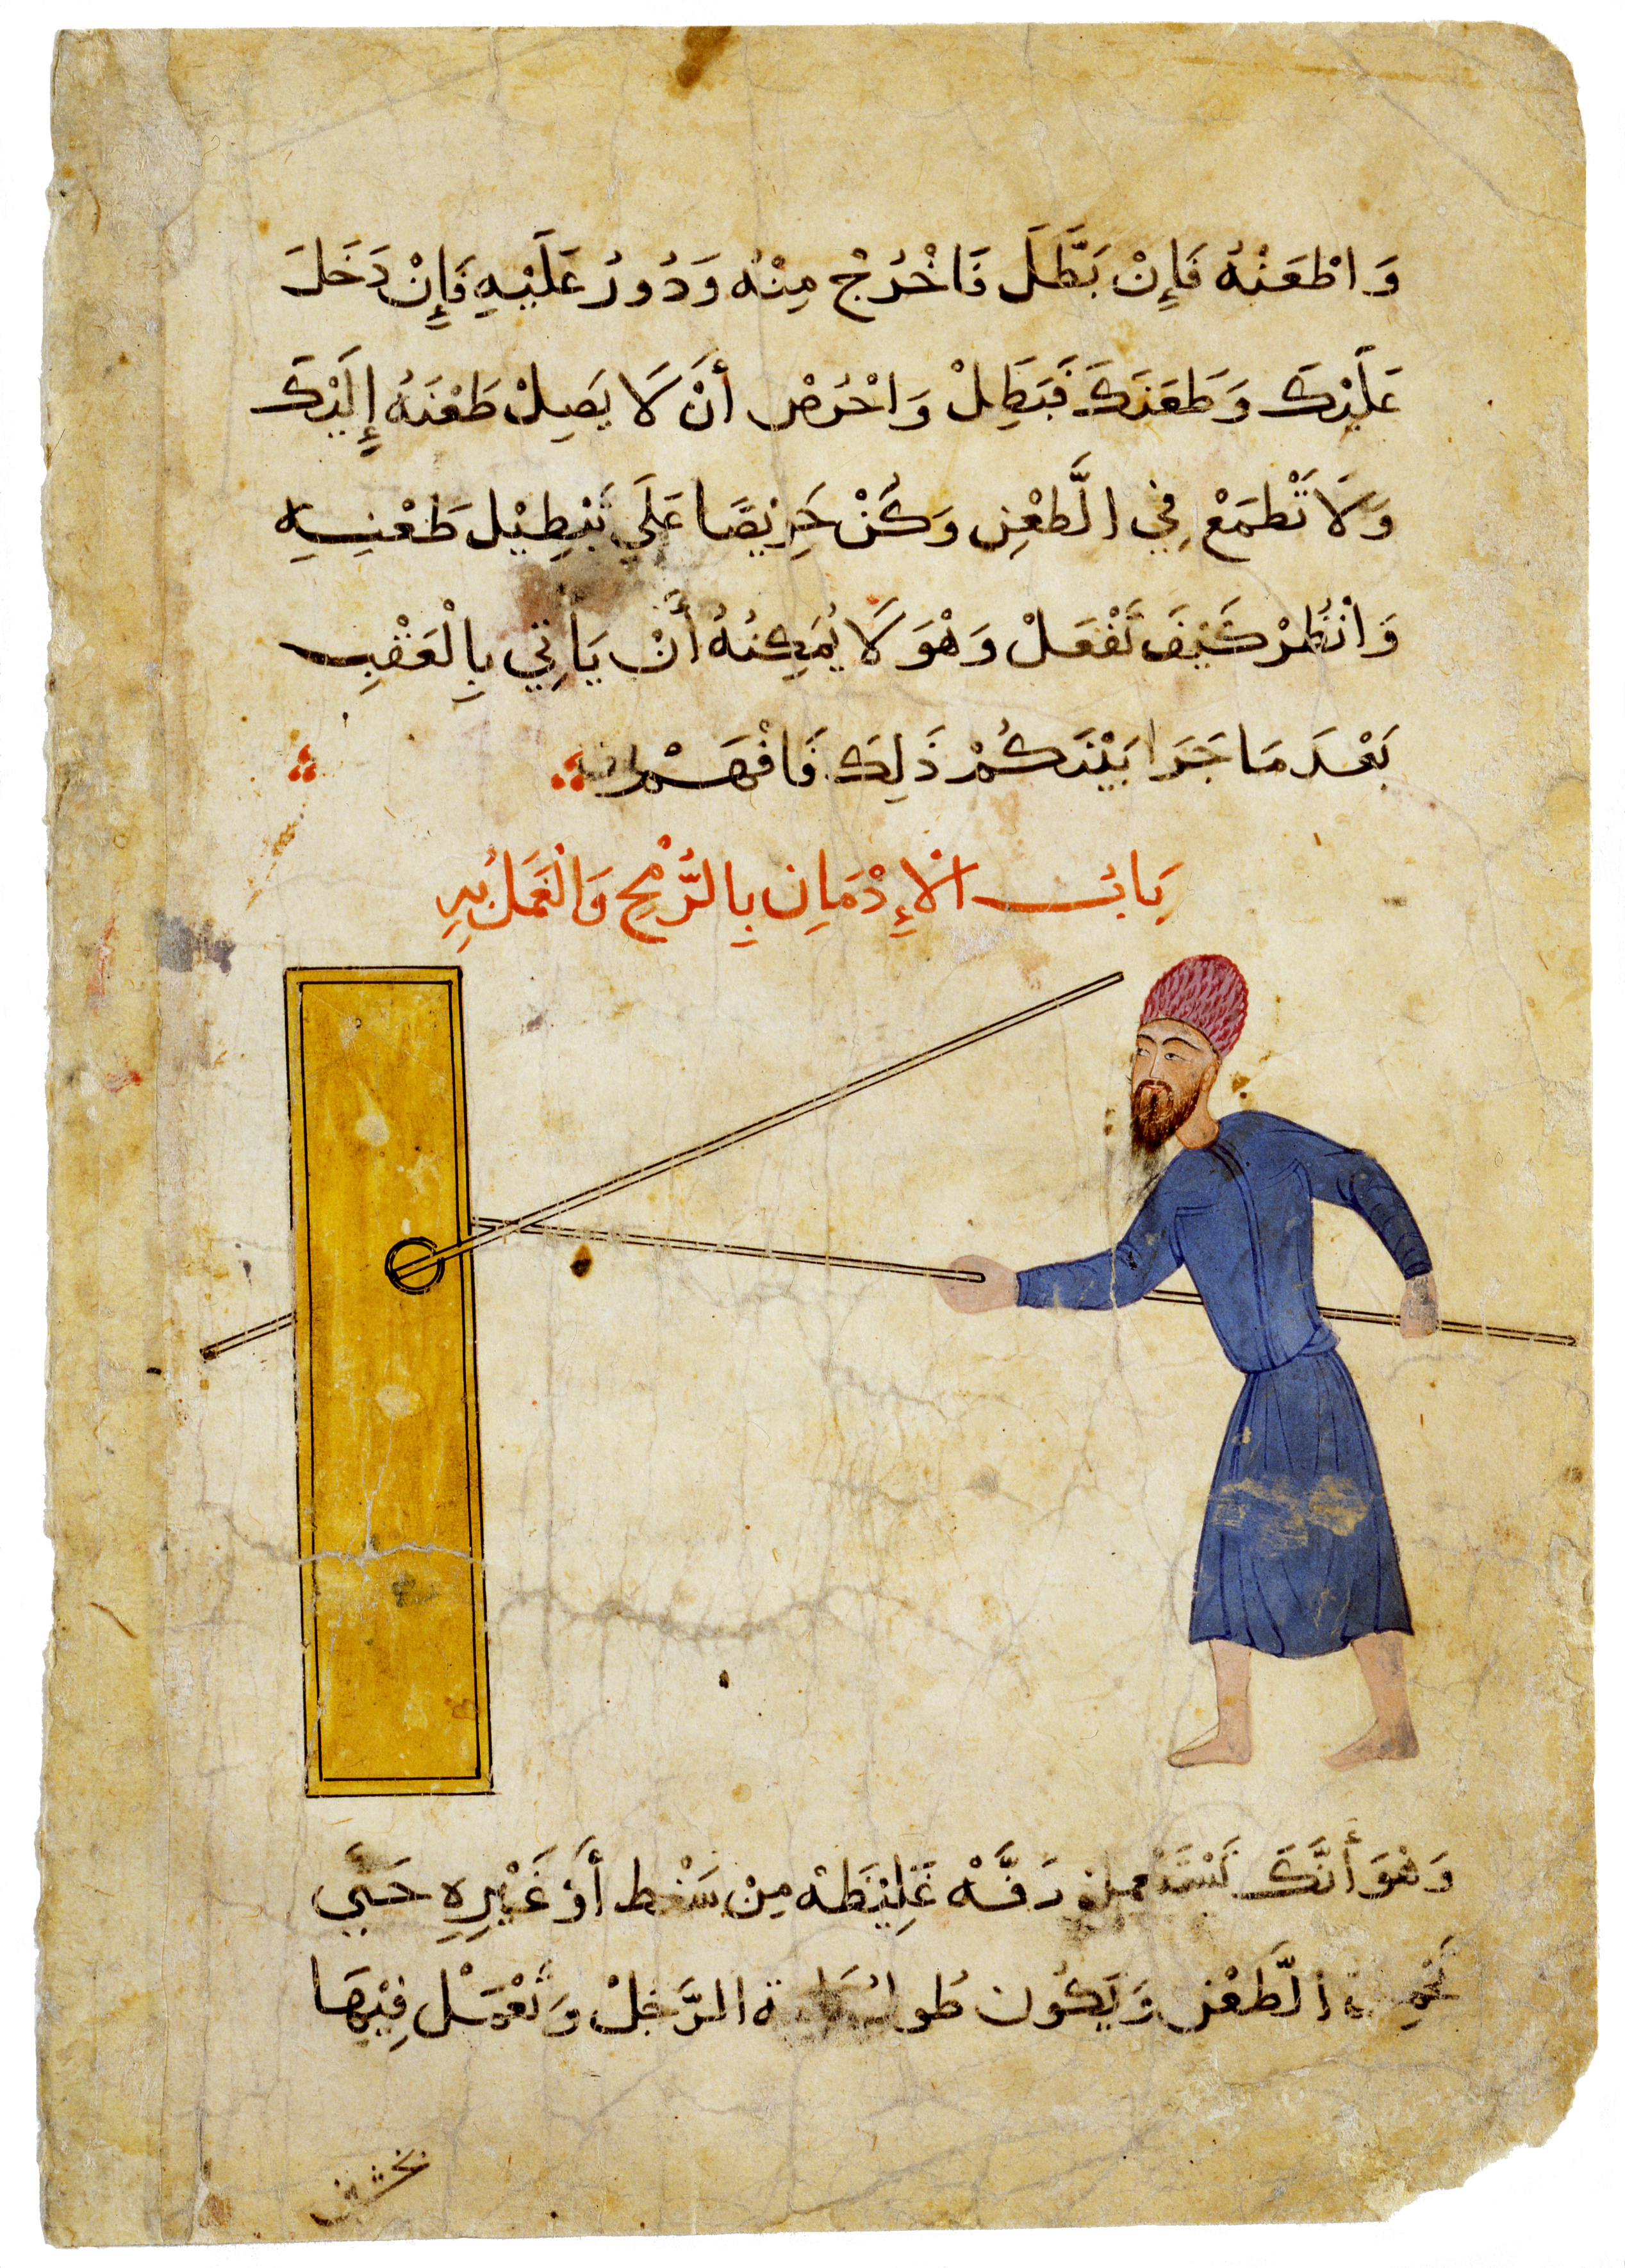 وَاطْعَنْهُ فَإِنْ بَطَّلَ فَاخْرُجْ مِنْهُ وَدُورُ عَلَيْهِ فَإِنْ دَخَلَ
عَلَيْكَ وَطَعَنَكَ فَبَطِلْ وَاحْرُصْ أَنْ لَا يَصِلْ طَعْنَهُ إِلَيْكَ
وَلَا تَطْمَعْ فِي الطَّعْنِ وَكُنْ حَرِيْصًا عَلَي تَبْطِيْل طَعْنِيِهِ
وَانْظُرْ كَيْفَ تَفْعَلْ وَهْوَ لَا يُمَكِنُهُ أَنْ يَأتِي بِالْعَقْبِ
بَعْدَ مَا جَرَا بَيْنَكُمْ ذَلِكَ فَافْهَمْ
بَابُ الْإِدْمَانِ بِالرُّمْحِ وَالْعَمَلُ بِهِ
وَهْوَ أَنَّكَ تَسْتَعْمِلْ دَفَّهْ غَلِيْظَهْ مِنْ سَنْط أَوْ غَيْرِهِ حَتَّي
الطَّعْن وَيَكُون طُول الرَّجُلْ وَتَعْمَلْ فِيْهَا